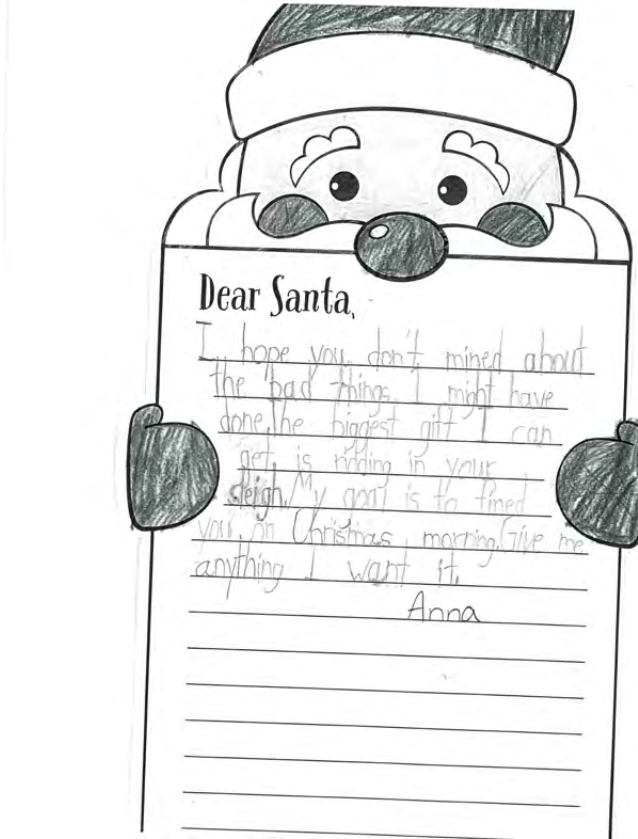 Dear Santa,
I hope you don't mined about
the bad things I might have
done. The biggest gift I can
get, is ridding in your
sleigh. My goal is to fined
you, on Christmas morning. Give me
anything I want it.
Anna